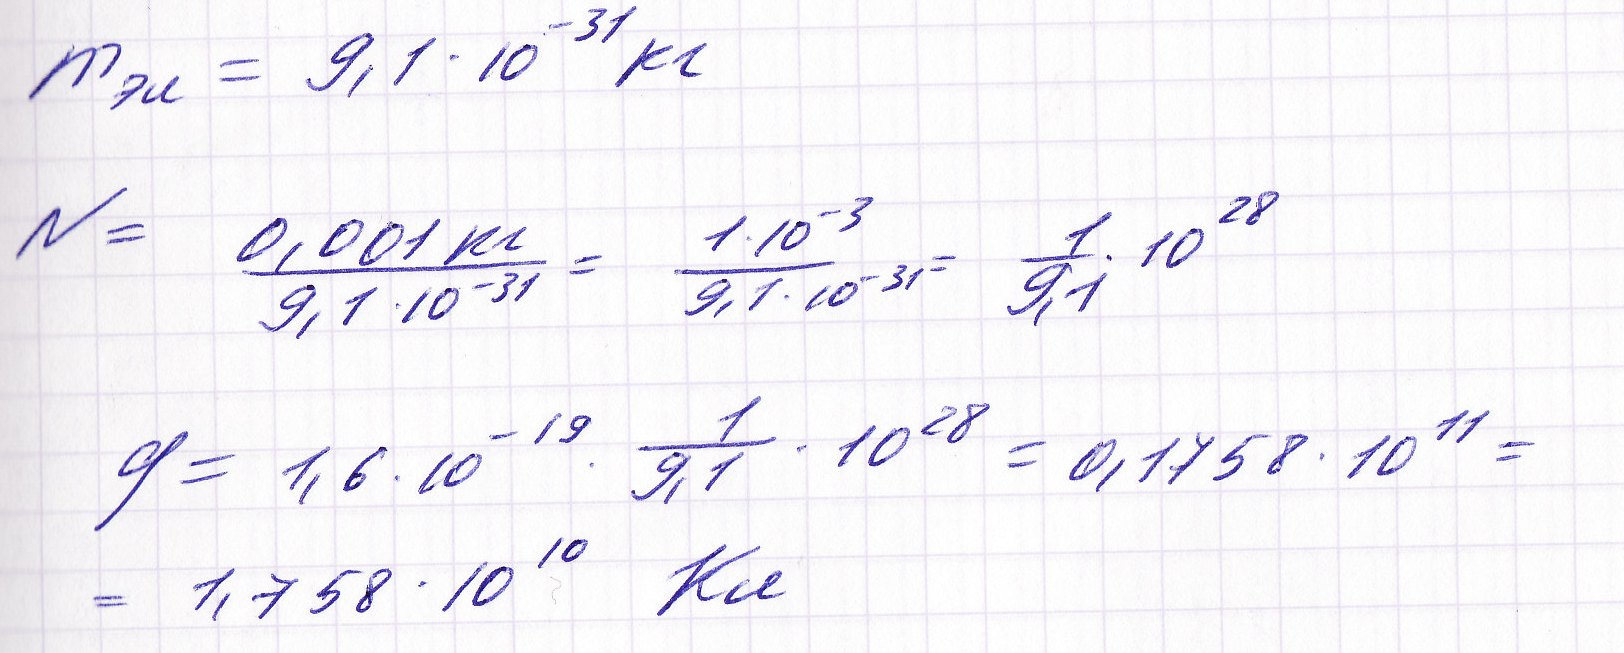 mэл = 9,1 · 10⁻³¹ кг
N = 0,001 кг / 9,1 · 10⁻³¹ = 1 · 10⁻³ / 9,1 · 10⁻³¹ = 1/9,1 · 10²⁸
q = 1,6 · 10⁻¹⁹ · 1/9,1 · 10²⁸ = 0,1758 · 10¹¹ =
= 1,758 · 10¹⁰ Кл